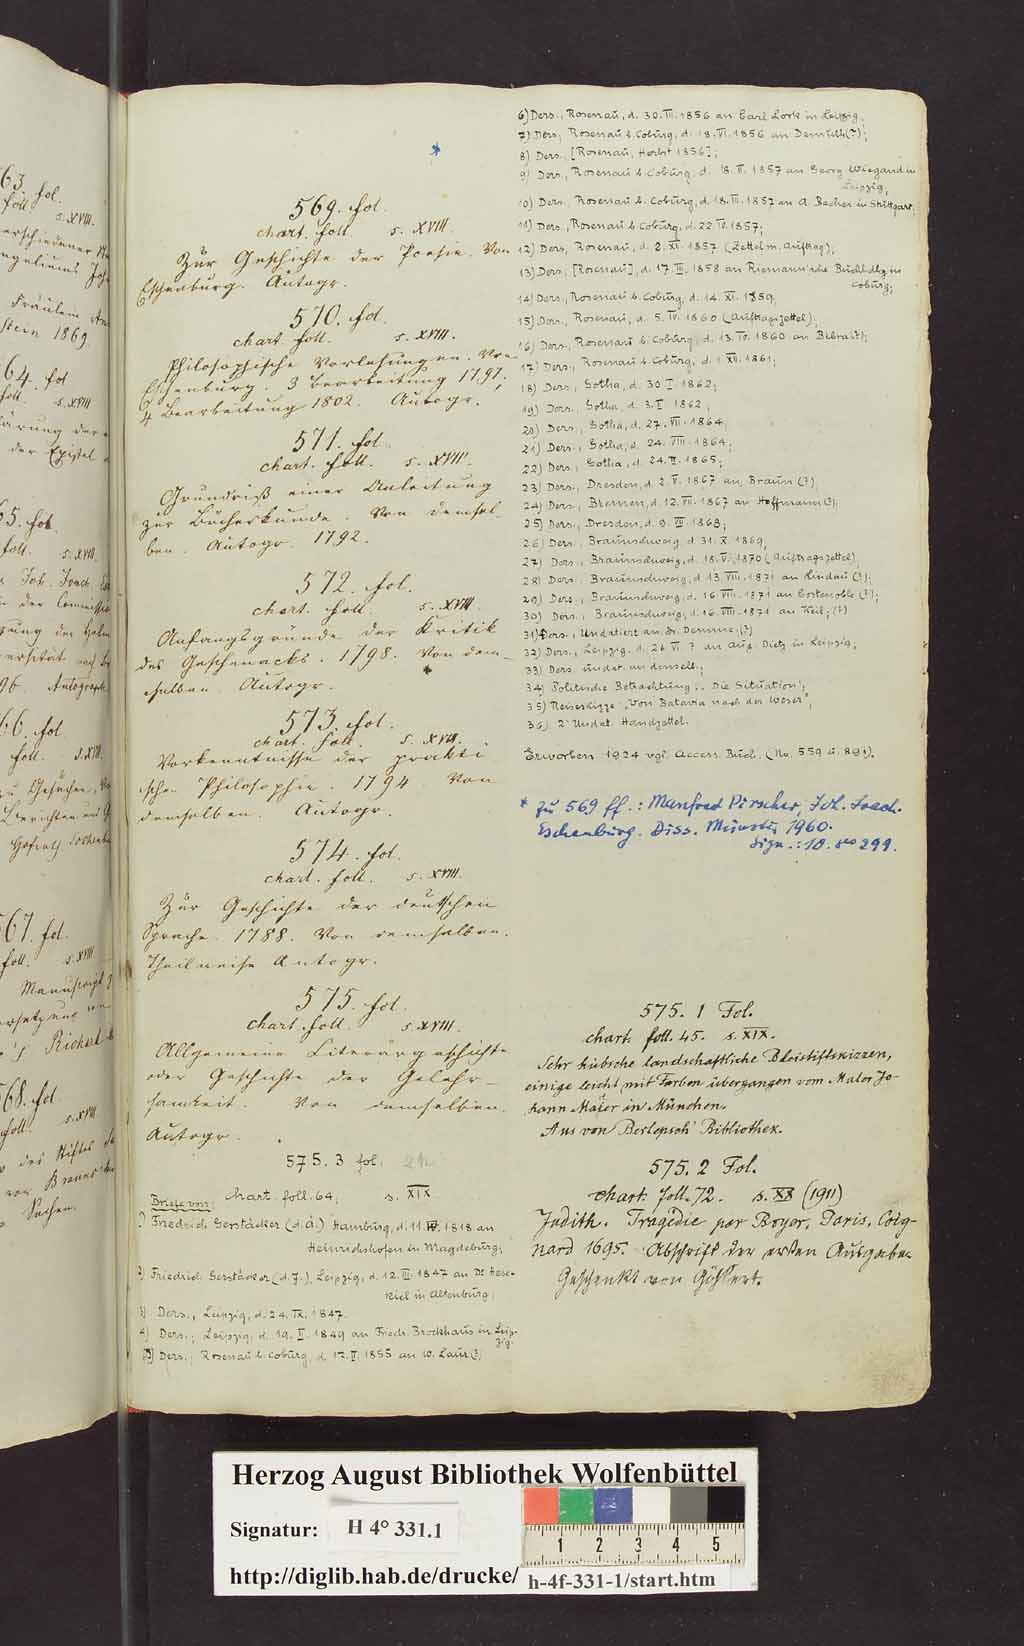 63. fol.
foll. s. XVIII.
Fräulein
stein 1869.
64. fol
foll. s. XVIII
der Epistel
65. fol.
foll. s. XVIII.
Joh. Joach.
96. Autograph
66. fol.
foll. s. XVIII.
Hofrath
567. fol.
foll. s. XVIII.
Manuscript
568. fol.
foll. s. XVIII.
des Stiftes
Sachen.
*
569. fol.
chart. foll. s. XVIII.
Zur Geschichte der Poesie. Von
Eschenburg. Autogr.
570. fol.
chart. foll. s. XVIII.
Philosophische Vorlesungen. Von
Eschenburg. 3 Bearbeitung 1797;
4 Bearbeitung 1802. Autogr.
571. fol.
chart. foll. s. XVIII.
Grundriß einer Anleitung
zur Bücherkunde. Von demsel-
ben. Autogr. 1792.
572. fol.
chart. foll. s. XVIII.
Anfangsgründe der Kritik
des Geschmacks. 1798. Von dem-
selben. Autogr.
573. fol.
chart. foll. s. XVIII.
Vorkenntnisse der prakti
schen Philosophie. 1794. Von
demselben. Autogr.
574. fol.
chart. foll. s. XVIII.
Zur Geschichte der deutschen
Sprache. 1788. Von demselben.
Theilweise Autogr.
575. fol.
chart. foll. s. XVIII.
Allgemeine Literärgeschichte
oder Geschichte der Gelehr-
samkeit. Von demselben.
Autogr.
575. 3 fol.
Briefe von: chart. foll. 64; s. XIX
1) Friedrich Gerstäcker (d. ä.) Hamburg, d. 11. IV. 1818 an
Heinrichshofen in Magdeburg;
2) Friedrich Gerstäcker (d. J.), Leipzig, d. 12. III. 1847 an Dr. Hese-
kiel in Altenburg;
3) Ders., Leipzig, d. 24. IX. 1847.
4) Ders., Leipzig, d. 19. II. 1849 an Friedr. Brockhaus in Leip-
zig.
5) Ders., Rosenau b. Coburg, d. 17. II. 1855 an W. Laur (?)
6) Ders., Rosenau, d. 30. III. 1856 an Carl Lork in Leipzig;
7) Ders., Rosenau b. Coburg, d. 18. VI. 1856 an (?);
8) Ders., [Rosenau, Herbst 1856];
9) Ders., Rosenau b. Coburg, d. 18. II. 1857 an Georg Wiegand in
Leipzig,
10) Ders., Rosenau b. Coburg, d. 18. III. 1857 an A. Becher in Stuttgart;
11) Ders., Rosenau b. Coburg, d. 22. IV. 1857;
12) Ders., Rosenau, d. 2. XI. 1857 (Zettel m. Auftrag);
13) Ders., [Rosenau], d. 17. III. 1858 an Riemann'sche Buchhdlg in
Coburg;
14) Ders., Rosenau b. Coburg, d. 14. XI. 1859,
15) Ders., Rosenau, d. 5. IV. 1860 (Auftragszettel),
16) Ders., Rosenau b. Coburg, d. 13. IV. 1860 an
17) Ders., Rosenau b. Coburg, d. 1. XII. 1861;
18) Ders., Gotha, d. 30. I. 1862;
19) Ders., Gotha, d. 3. I. 1862;
20) Ders., Gotha, d. 27. VII. 1864,
21) Ders., Gotha, d. 24. VIII. 1864;
22) Ders., Gotha, d. 24. II. 1865;
23) Ders., Dresden, d. 2. V. 1867 an Braun (?),
24) Ders., Bremen, d. 12. VII. 1867 an Hoffmann (?);
25) Ders., Dresden, d. 9. III. 1868;
26) Ders., Braunschweig d. 31. X. 1869;
27) Ders., Braunschweig, d. 18. V. 1870 (Auftragszettel);
28) Ders., Braunschweig, d. 13. VIII. 1871 an Lindau (?);
29) Ders., Braunschweig, d. 16. VIII. 1871 an Costenoble (?);
30) Ders., Braunschweig, d. 16. VIII. 1871 an Keil; (?)
31) Ders., Undatiert an Dr. Demme (?)
32) Ders., Leipzig, d. 26. VI. ? an Aug. Dietz in Leipzig;
33) Ders. undat. an denselb.;
34) Politische Betrachtung: „Die Situation";
35) Reiseskizze „Von Batavia nach der Weser",
36) 2 Undat. Handzettel.
Erworben 1924 vgl. Access. Buch. (No. 559 u. 891).
* Zu 569 ff.: Manfred Pirscher, Joh. Joach.
Eschenburg. Diss. Münster 1960.
Sign.: 18. 299.
575. 1 Fol.
chart. foll. 45. s. XIX.
Sehr hübsche landschaftliche Bleistiftskizzen,
einige leicht mit Farben übergangen vom Maler Jo-
hann Maier in München.
Aus von Berlepsch' Bibliothek.
575. 2 Fol.
chart. foll. 72. s. XX (1911)
Judith. Tragédie par Boyer, Paris, Coig-
nard 1695. Abschrift der ersten Ausgabe.
Geschenkt von
Herzog August Bibliothek Wolfenbüttel
Signatur: H 4° 331.1
1 2 3 4 5
http://diglib.hab.de/drucke/ h-4f-331-1/start.htm